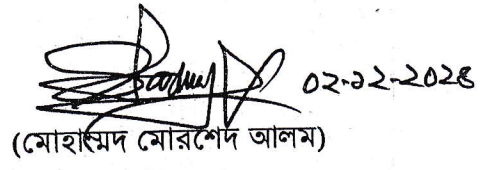 ০২-১২-২০২৪
(মোহাম্মদ মোরশেদ আলম)